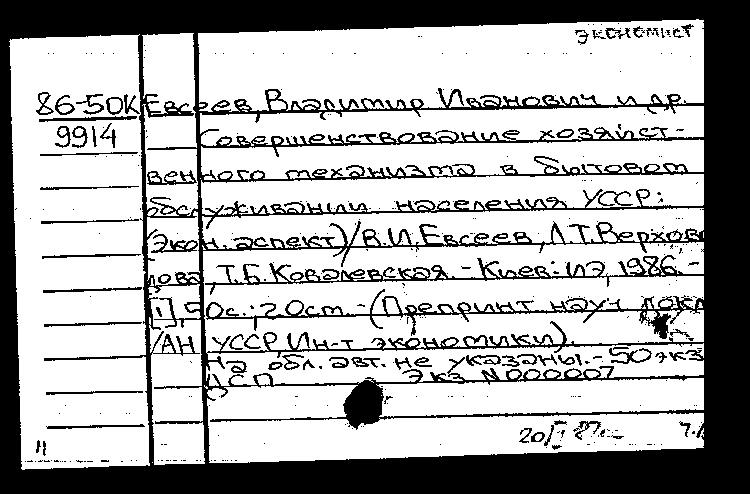 экономист
86-50К Евсеев, Владимир Иванович и др.
9914 Совершенствование хозяйст-
венного механизма в бытовом
обслуживании населения УССР:
(Экон. аспект)/В.И.Евсеев, Л.Т.Верхово
дова, Т.Б.Ковалевская.-Киев: ИЭ, 1986.-
[1], 50с.; 20см.-(Препринт науч. докл
/АН УССР, Ин-т экономики).
На обл. авт. не указаны.-50 экз
ДСП. Экз N000007
20/I 87г.
11